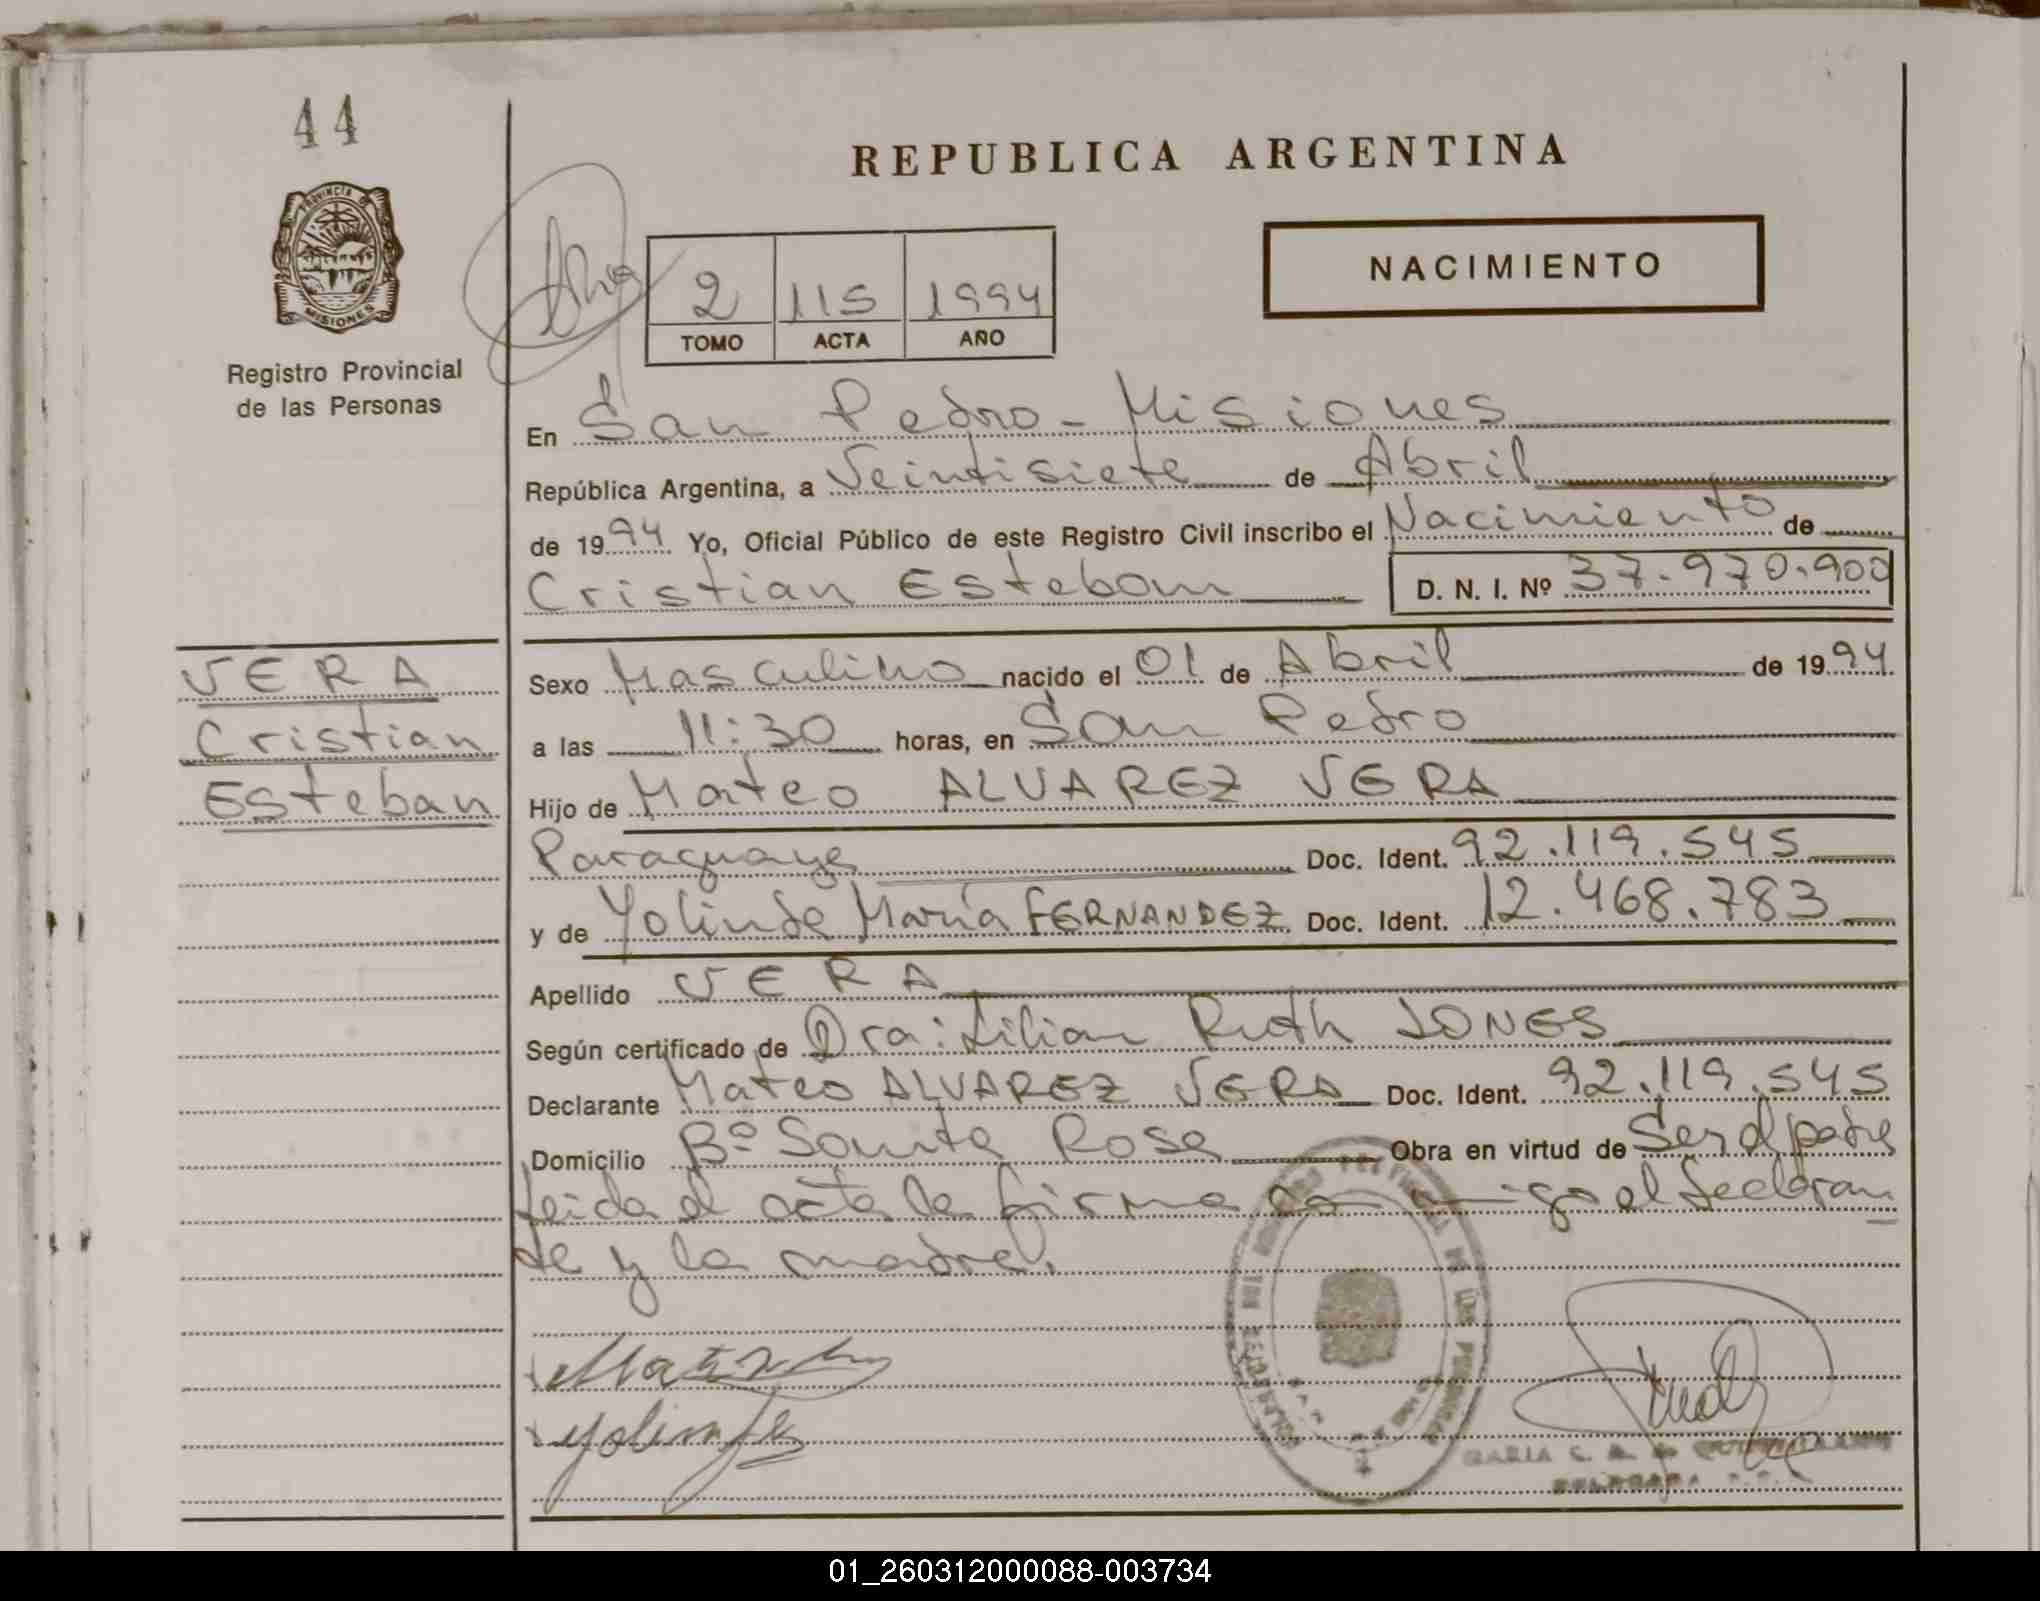 44
PROVINCIA DE
MISIONES
Registro Provincial
de las Personas
REPUBLICA ARGENTINA
2 115 1994
TOMO ACTA AÑO
NACIMIENTO
En San Pedro - Misiones
República Argentina, a Veintisiete de Abril
de 1994 Yo, Oficial Público de este Registro Civil inscribo el Nacimiento de
Cristian Esteban D. N. I. Nº 37.970.900
VERA
Cristian
Esteban
Sexo Masculino nacido el 01 de Abril de 1994
a las 11:30 horas, en San Pedro
Hijo de Mateo ALVAREZ VERA
Paraguaya Doc. Ident. 92.119.545
y de Yolinda María FERNANDEZ Doc. Ident. 12.468.783
Apellido VERA
Según certificado de Dra: Lilian Ruth JONES
Declarante Mateo ALVAREZ VERA Doc. Ident. 92.119.545
Domicilio Bº Santa Rosa Obra en virtud de Ser el padre
leida el acta la firma conmigo el declaran
te y la madre.
01_260312000088-003734